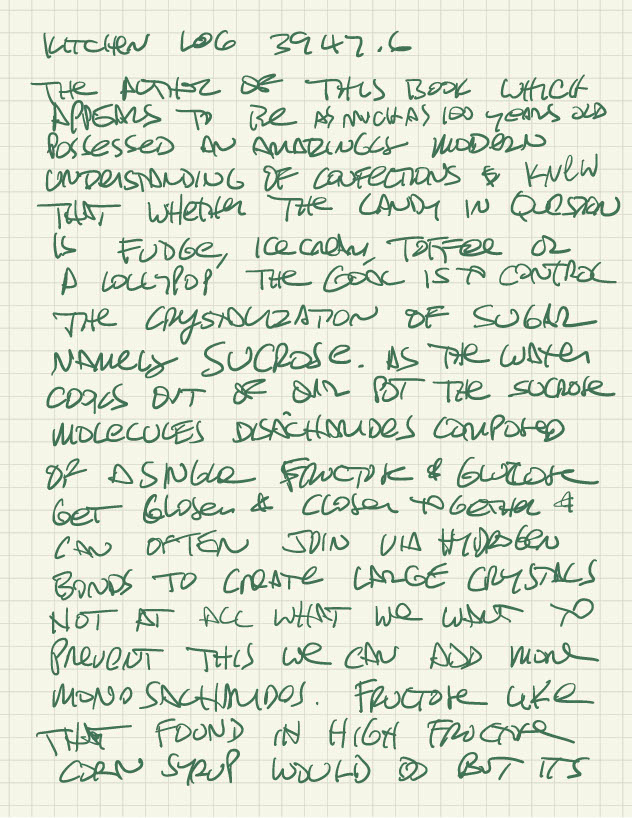 KITCHEN LOG 3947.6
THE AUTHOR OF THIS BOOK WHICH
APPEARS TO BE AS MUCH AS 100 YEARS OLD
POSSESSED AN AMAZINGLY MODERN
UNDERSTANDING OF CONFECTIONS & KNEW
THAT WHETHER THE CANDY IN QUESTION
IS FUDGE, ICE CREAM, TOFFEE OR
A LOLLYPOP, THE GOAL IS TO CONTROL
THE CRYSTALIZATION OF SUGAR
NAMELY SUCROSE. AS THE WATER
COOKS OUT OF OUR POT THE SUCROSE
MOLECULES DISACHARIDES COMPOSED
OF A SINGLE FRUCTOSE & GLUCOSE
GET CLOSER & CLOSER TOGETHER &
CAN OFTEN JOIN VIA HYDROGEN
BONDS TO CREATE LARGE CRYSTALS
NOT AT ALL WHAT WE WANT TO
PREVENT THIS WE CAN ADD MORE
MONOSACHARIDES. FRUCTOSE LIKE
THAT FOUND IN HIGH FRUCTOSE
CORN SYRUP WOULD DO BUT ITS